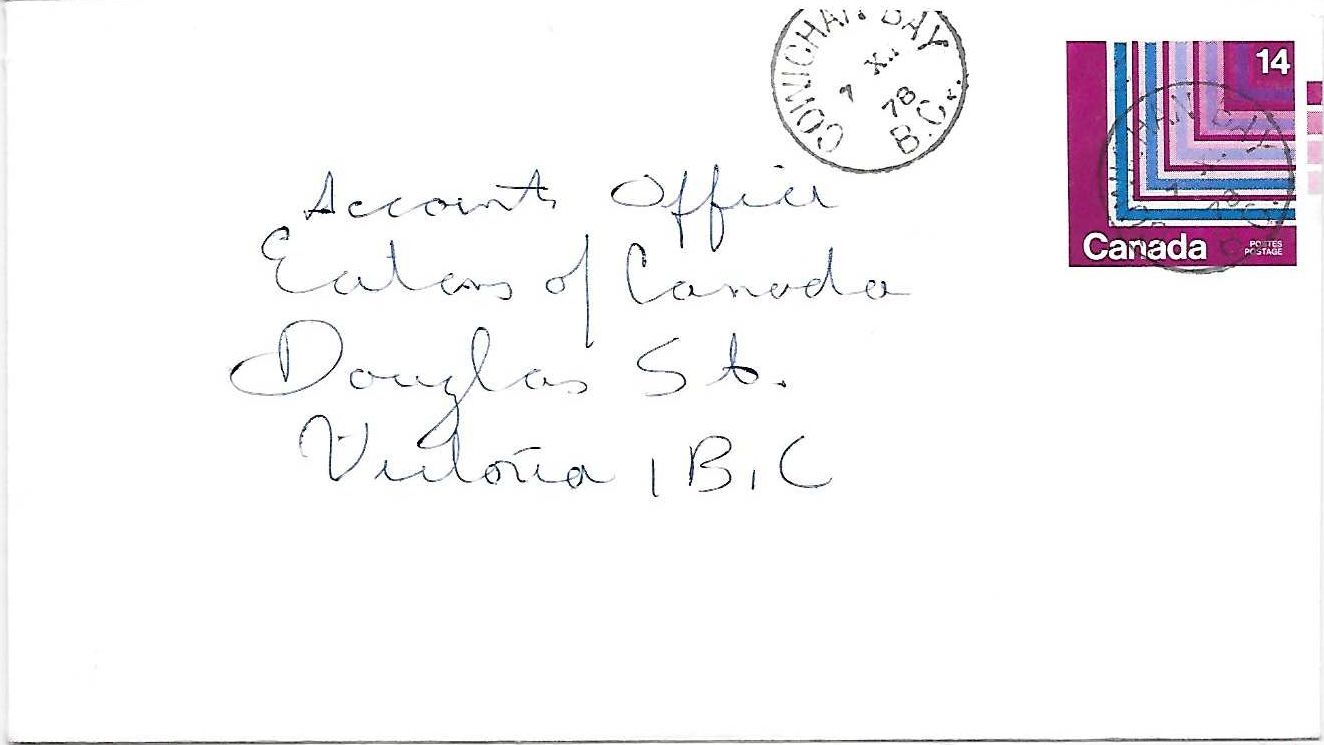 COWICHAN BAY
7 X
78
B.C.
14
Canada
POSTES
POSTAGE
Accounts Office
Eatons of Canada
Douglas St.
Victoria, B.C